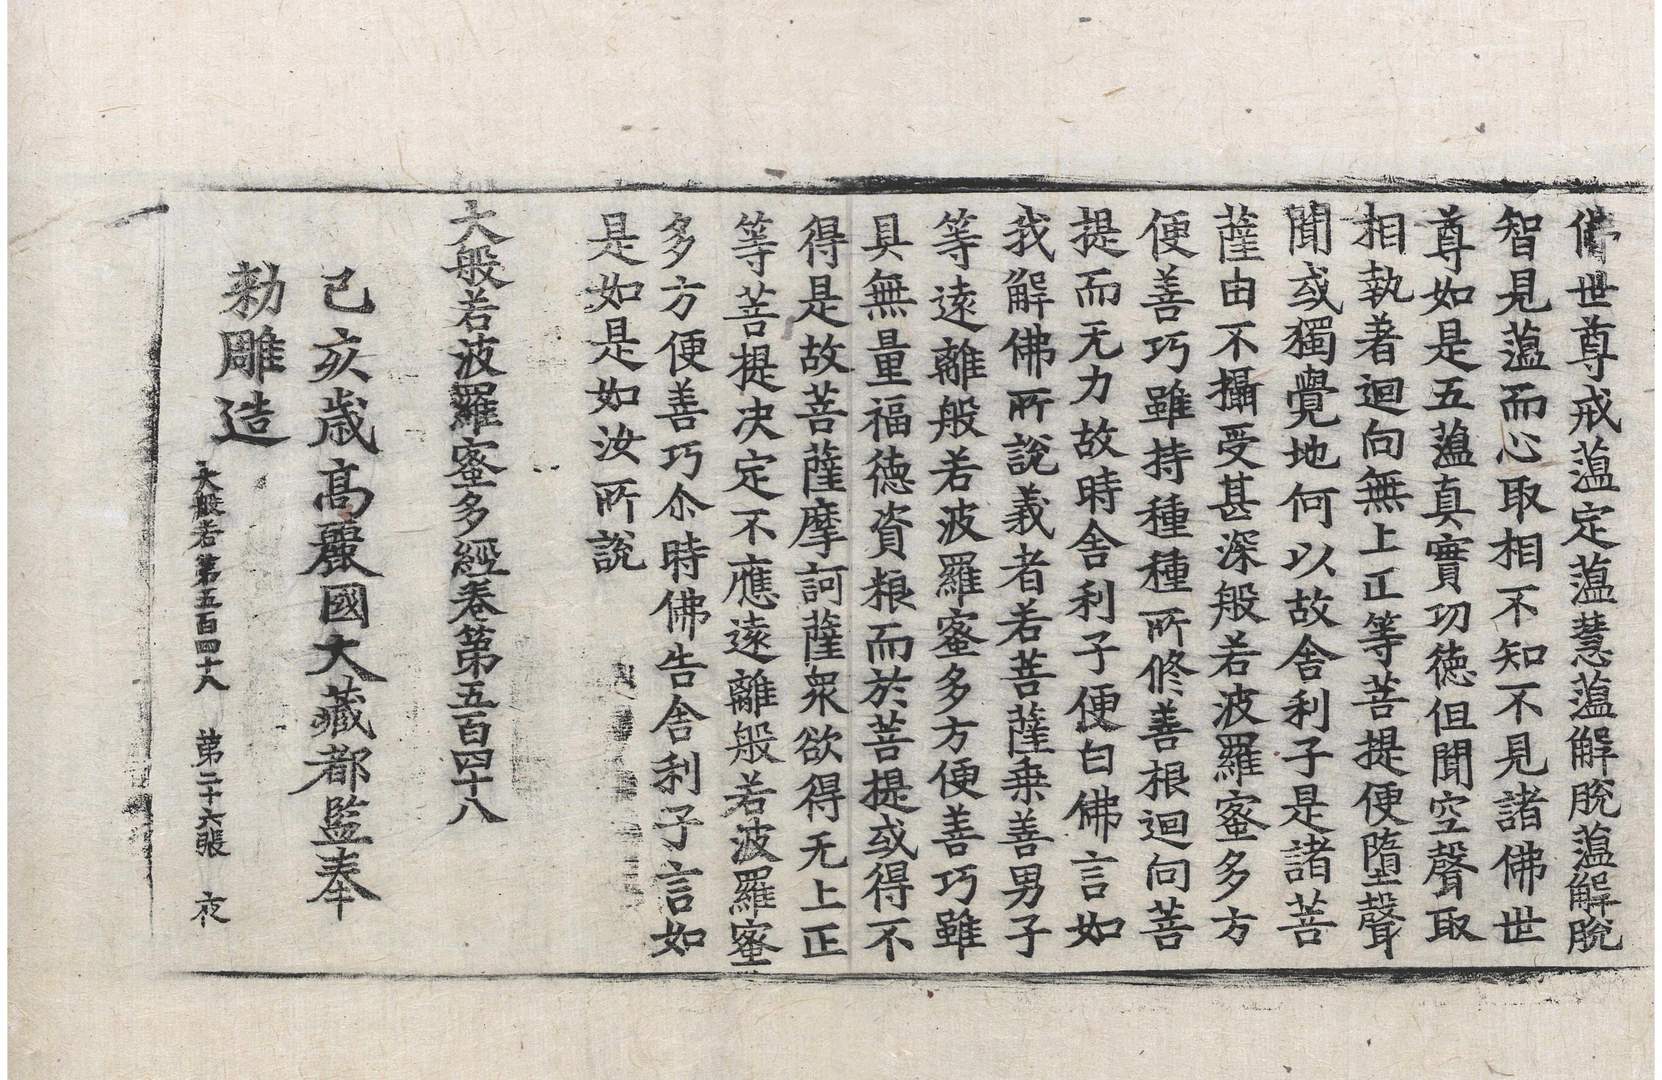 佛世尊戒藴定藴慧藴解脫藴解脫
智見藴而心取相不知不見諸佛世
尊如是五藴真實㓛德但聞空聲取
相執著迴向無上正等菩提便墮聲
聞或獨覺地何以故舍利子是諸菩
薩由不攝受甚深般若波羅蜜多方
便善巧雖持種種所修善根迴向菩
提而无力故時舍利子便白佛言如
我解佛所說義者若菩薩乗善男子
等遠離般若波羅蜜多方便善巧雖
具無量福德資粮而於菩提或得不
得是故菩薩摩訶薩衆欲得无上正
等菩提决定不應遠離般若波羅蜜
多方便善巧尒時佛告舍利子言如
是如是如汝所說
大般若波羅蜜多經卷第五百四十八
己亥歲高麗國大藏都監奉
勑雕造
大般若第五百四十八　第二十六張　夜